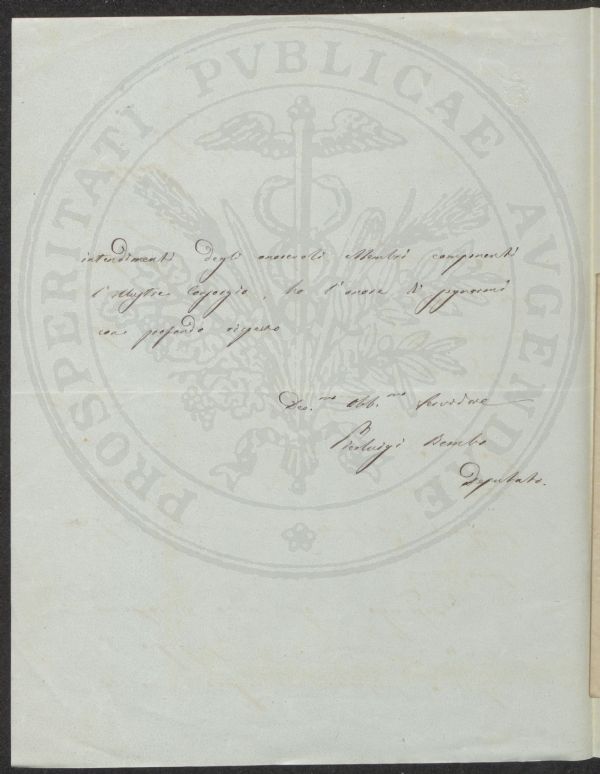 PROSPERITATI PVBLICAE AVGENDAE
intendimenti degli onorevoli Membri componenti
l'illustre Consorzio, ho l'onore di segnarmi
con profondo rispetto
Dev.mo Obb.mo Servidore
Pierluigi Bembo
Deputato.